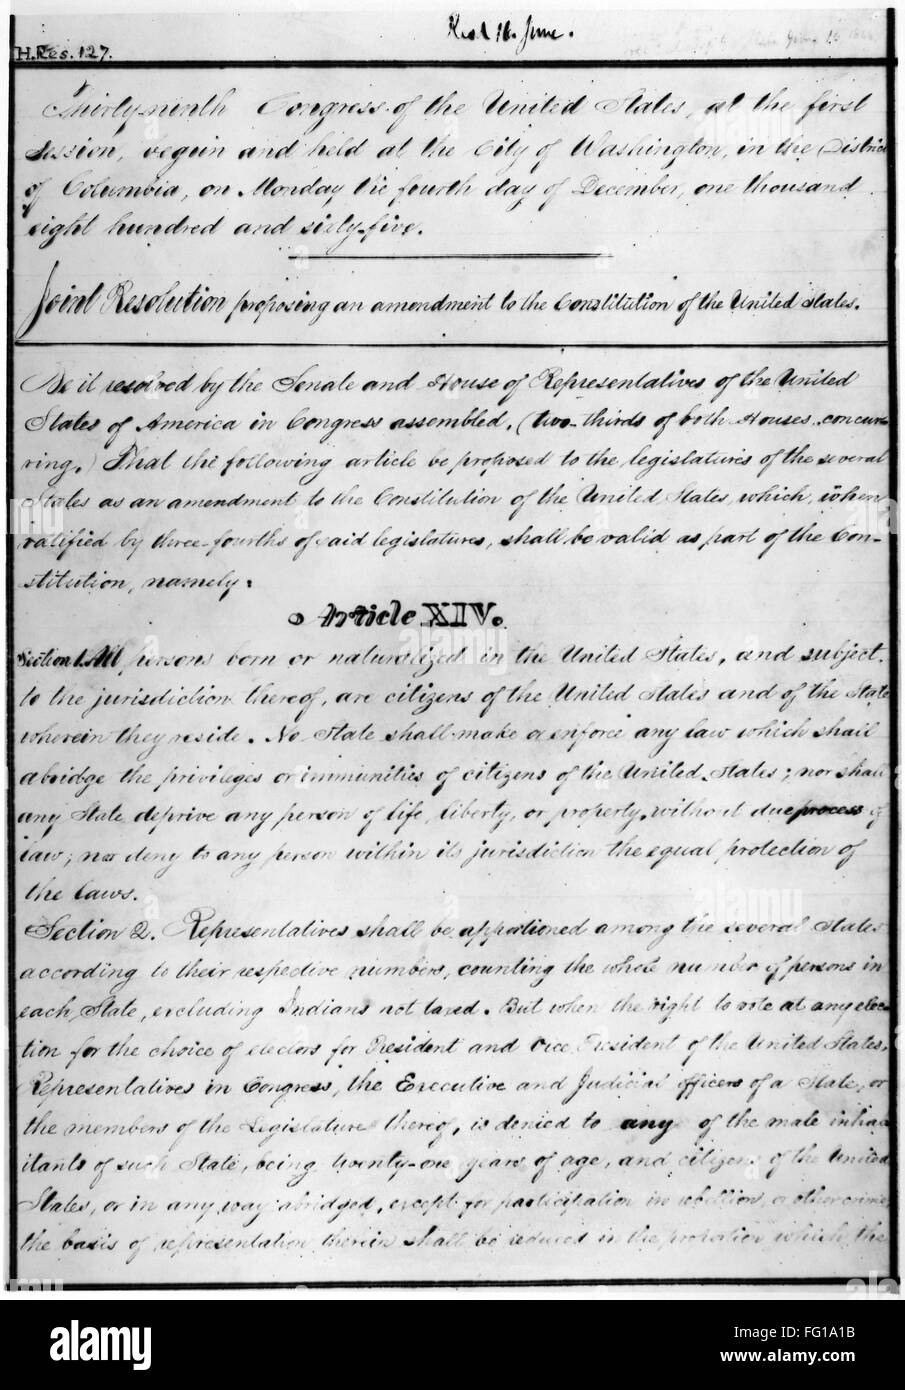 Recd 16. June.
H.Res. 127.
Thirty-ninth Congress of the United States, at the first
Session, begun and held at the City of Washington, in the District
of Columbia, on Monday the fourth day of December, one thousand
eight hundred and sixty-five.
Joint Resolution proposing an amendment to the Constitution of the United States.
Be it resolved by the Senate and House of Representatives of the United
States of America in Congress assembled, (two-thirds of both Houses concur-
ring,) That the following article be proposed to the legislatures of the several
States as an amendment to the Constitution of the United States, which, when
ratified by three-fourths of said legislatures, shall be valid as part of the Con-
stitution, namely:
Article XIV.
Section 1. All persons born or naturalized in the United States, and subject
to the jurisdiction thereof, are citizens of the United States and of the State
wherein they reside. No State shall make or enforce any law which shall
abridge the privileges or immunities of citizens of the United States; nor shall
any State deprive any person of life, liberty, or property, without due process of
law; nor deny to any person within its jurisdiction the equal protection of
the laws.
Section 2. Representatives shall be apportioned among the several States
according to their respective numbers, counting the whole number of persons in
each State, excluding Indians not taxed. But when the right to vote at any elec-
tion for the choice of electors for President and Vice President of the United States,
Representatives in Congress, the Executive and Judicial officers of a State, or
the members of the Legislature thereof, is denied to any of the male inhab
itants of such State, being twenty-one years of age, and citizens of the United
States, or in any way abridged, except for participation in rebellion, or other crime,
the basis of representation therein shall be reduced in the proportion which the
alamy
Image ID: FG1A1B
www.alamy.com